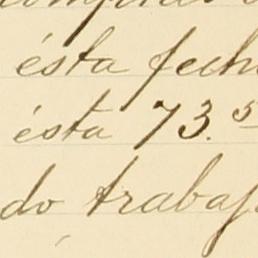 ésta fech
ésta 73.5
do trabaj